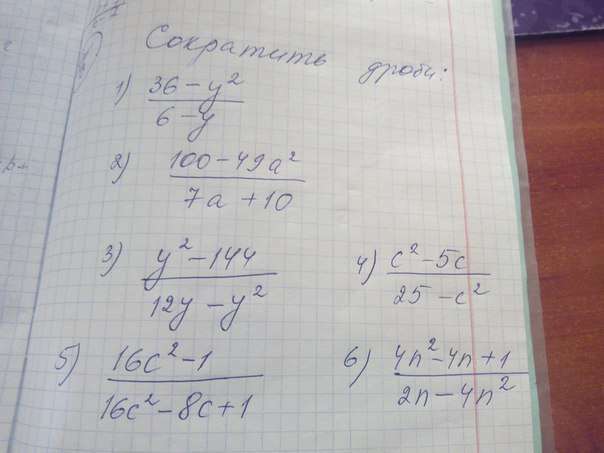 Сократить дроби:
1) (36 - y²)/(6 - y)
2) (100 - 49a²)/(7a + 10)
3) (y² - 144)/(12y - y²) 4) (c² - 5c)/(25 - c²)
5) (16c² - 1)/(16c² - 8c + 1) 6) (4n² - 4n + 1)/(2n - 4n²)